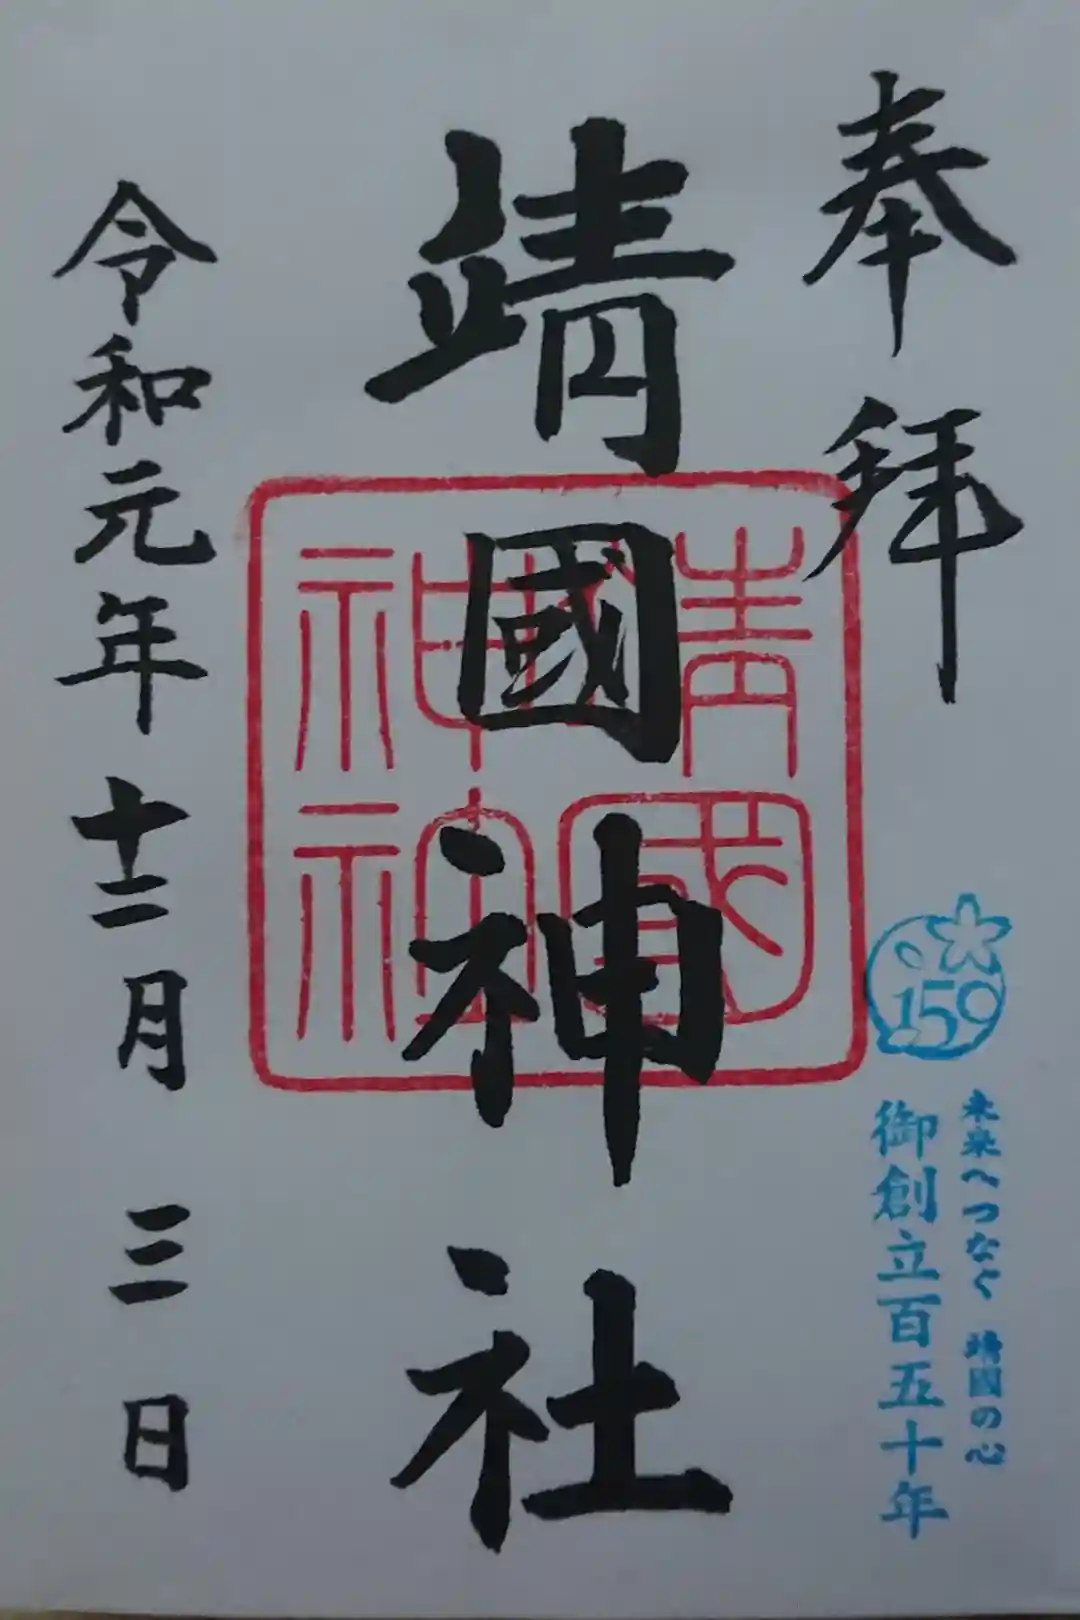 奉拜
159
未来へつなぐ 靖國の心
御創立百五十年
靖國神社
靖國神社
令和元年十二月三日